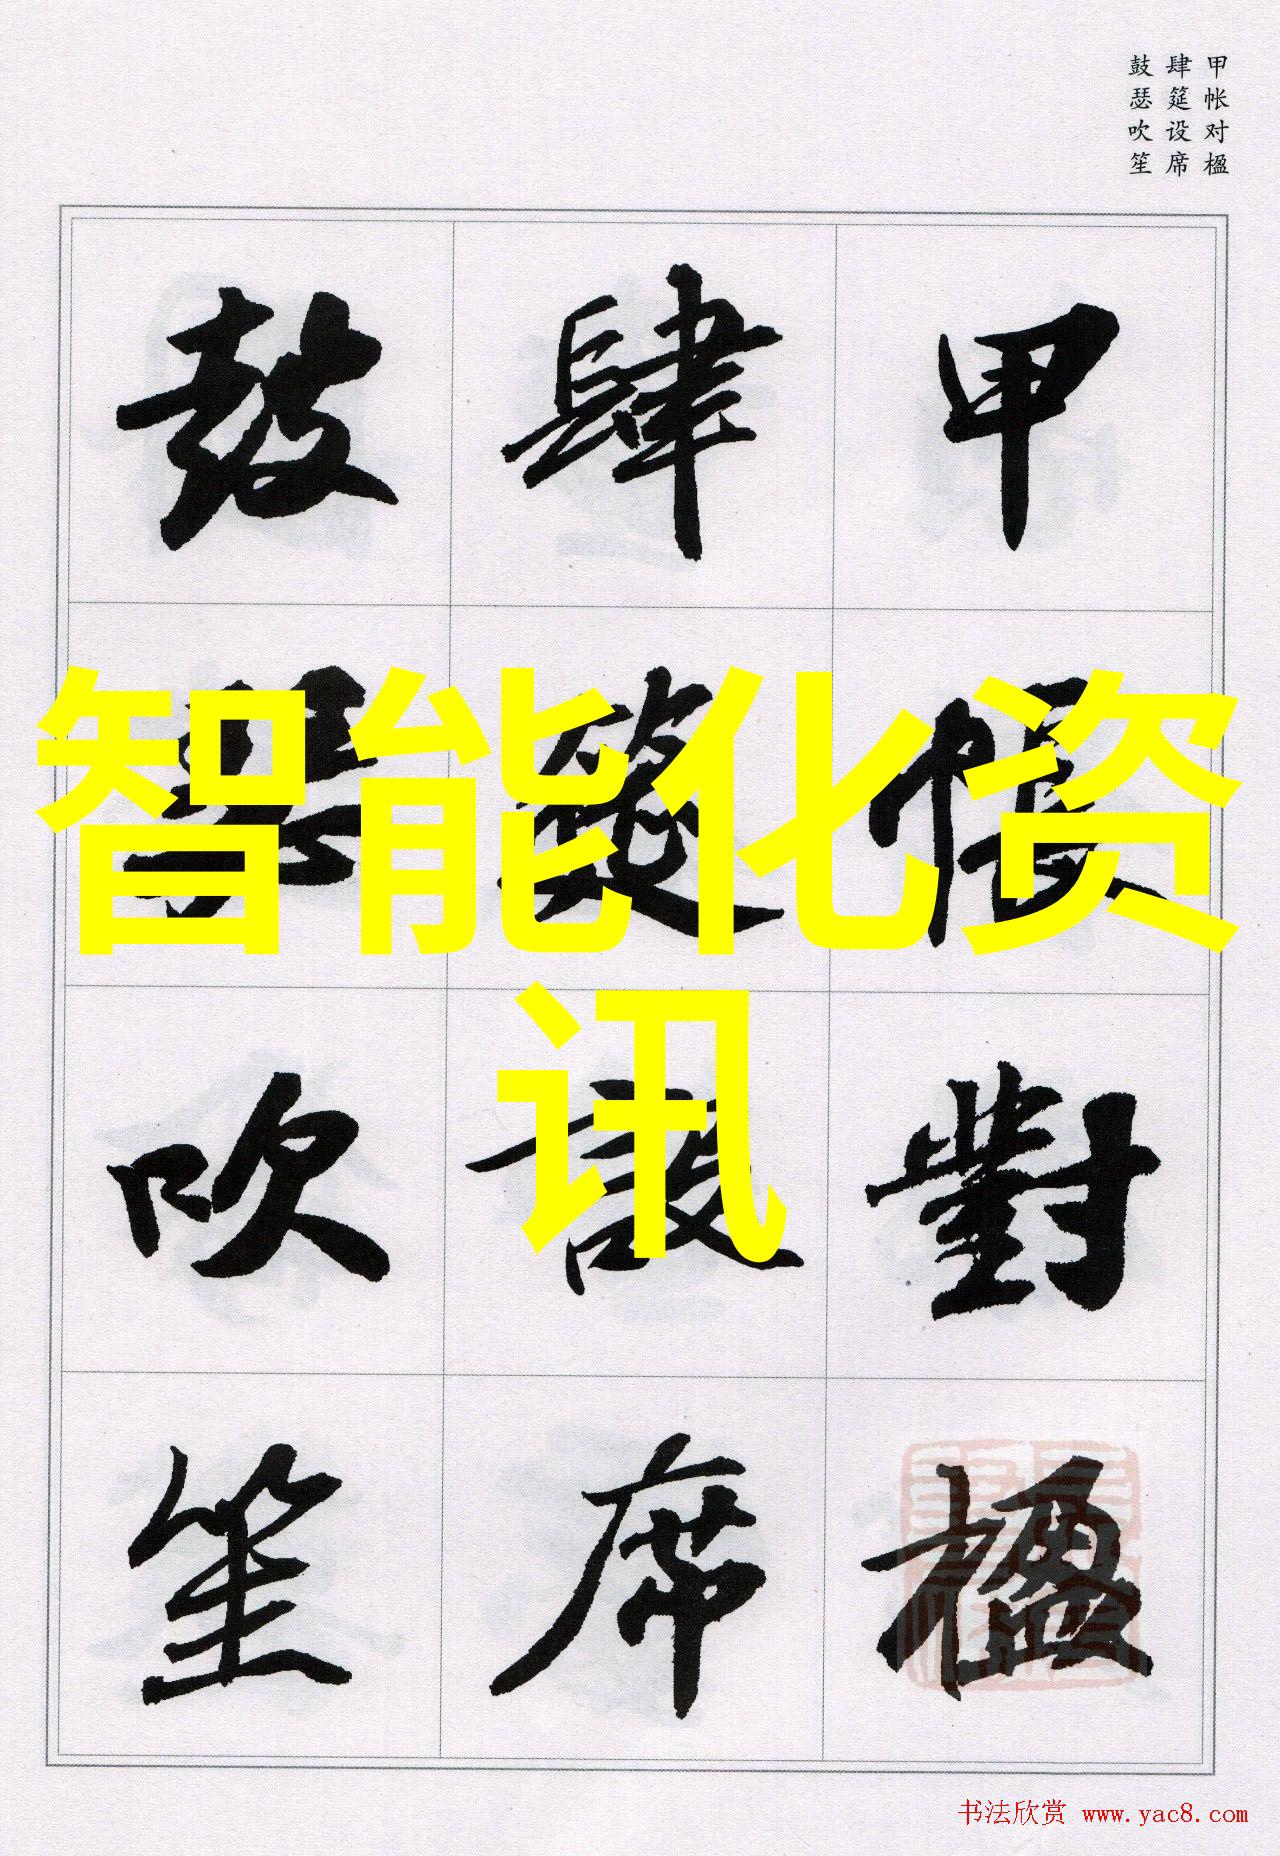 甲帐对楹
肆筵设席
鼓瑟吹笙
甲帳對楹
肆筵設席
鼓瑟吹笙
智能化资
讯
书法欣赏 www.yac8.com